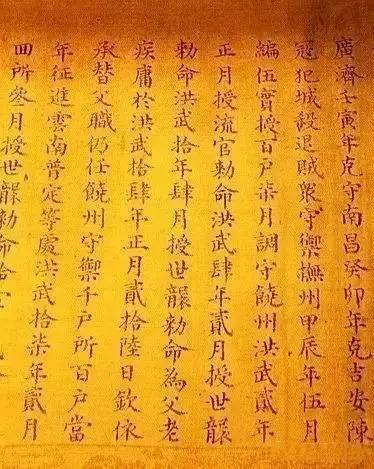 廣濟壬寅年克守南昌癸卯年克吉安陳
冦犯城殺退賊衆守禦撫州甲辰年伍月
編伍實授百戶柒月調守饒州洪武貳年
正月授流官勑命洪武肆年貳月授世襲
勑命洪武拾年肆月授世襲勑命為父老
疾庸於洪武拾肆年正月貳拾陸日欽依
承替父職仍任饒州守禦千戶所百戶當
年征進雲南普定等處洪武拾柒年貳月
回所叁月授世襲勑命拾